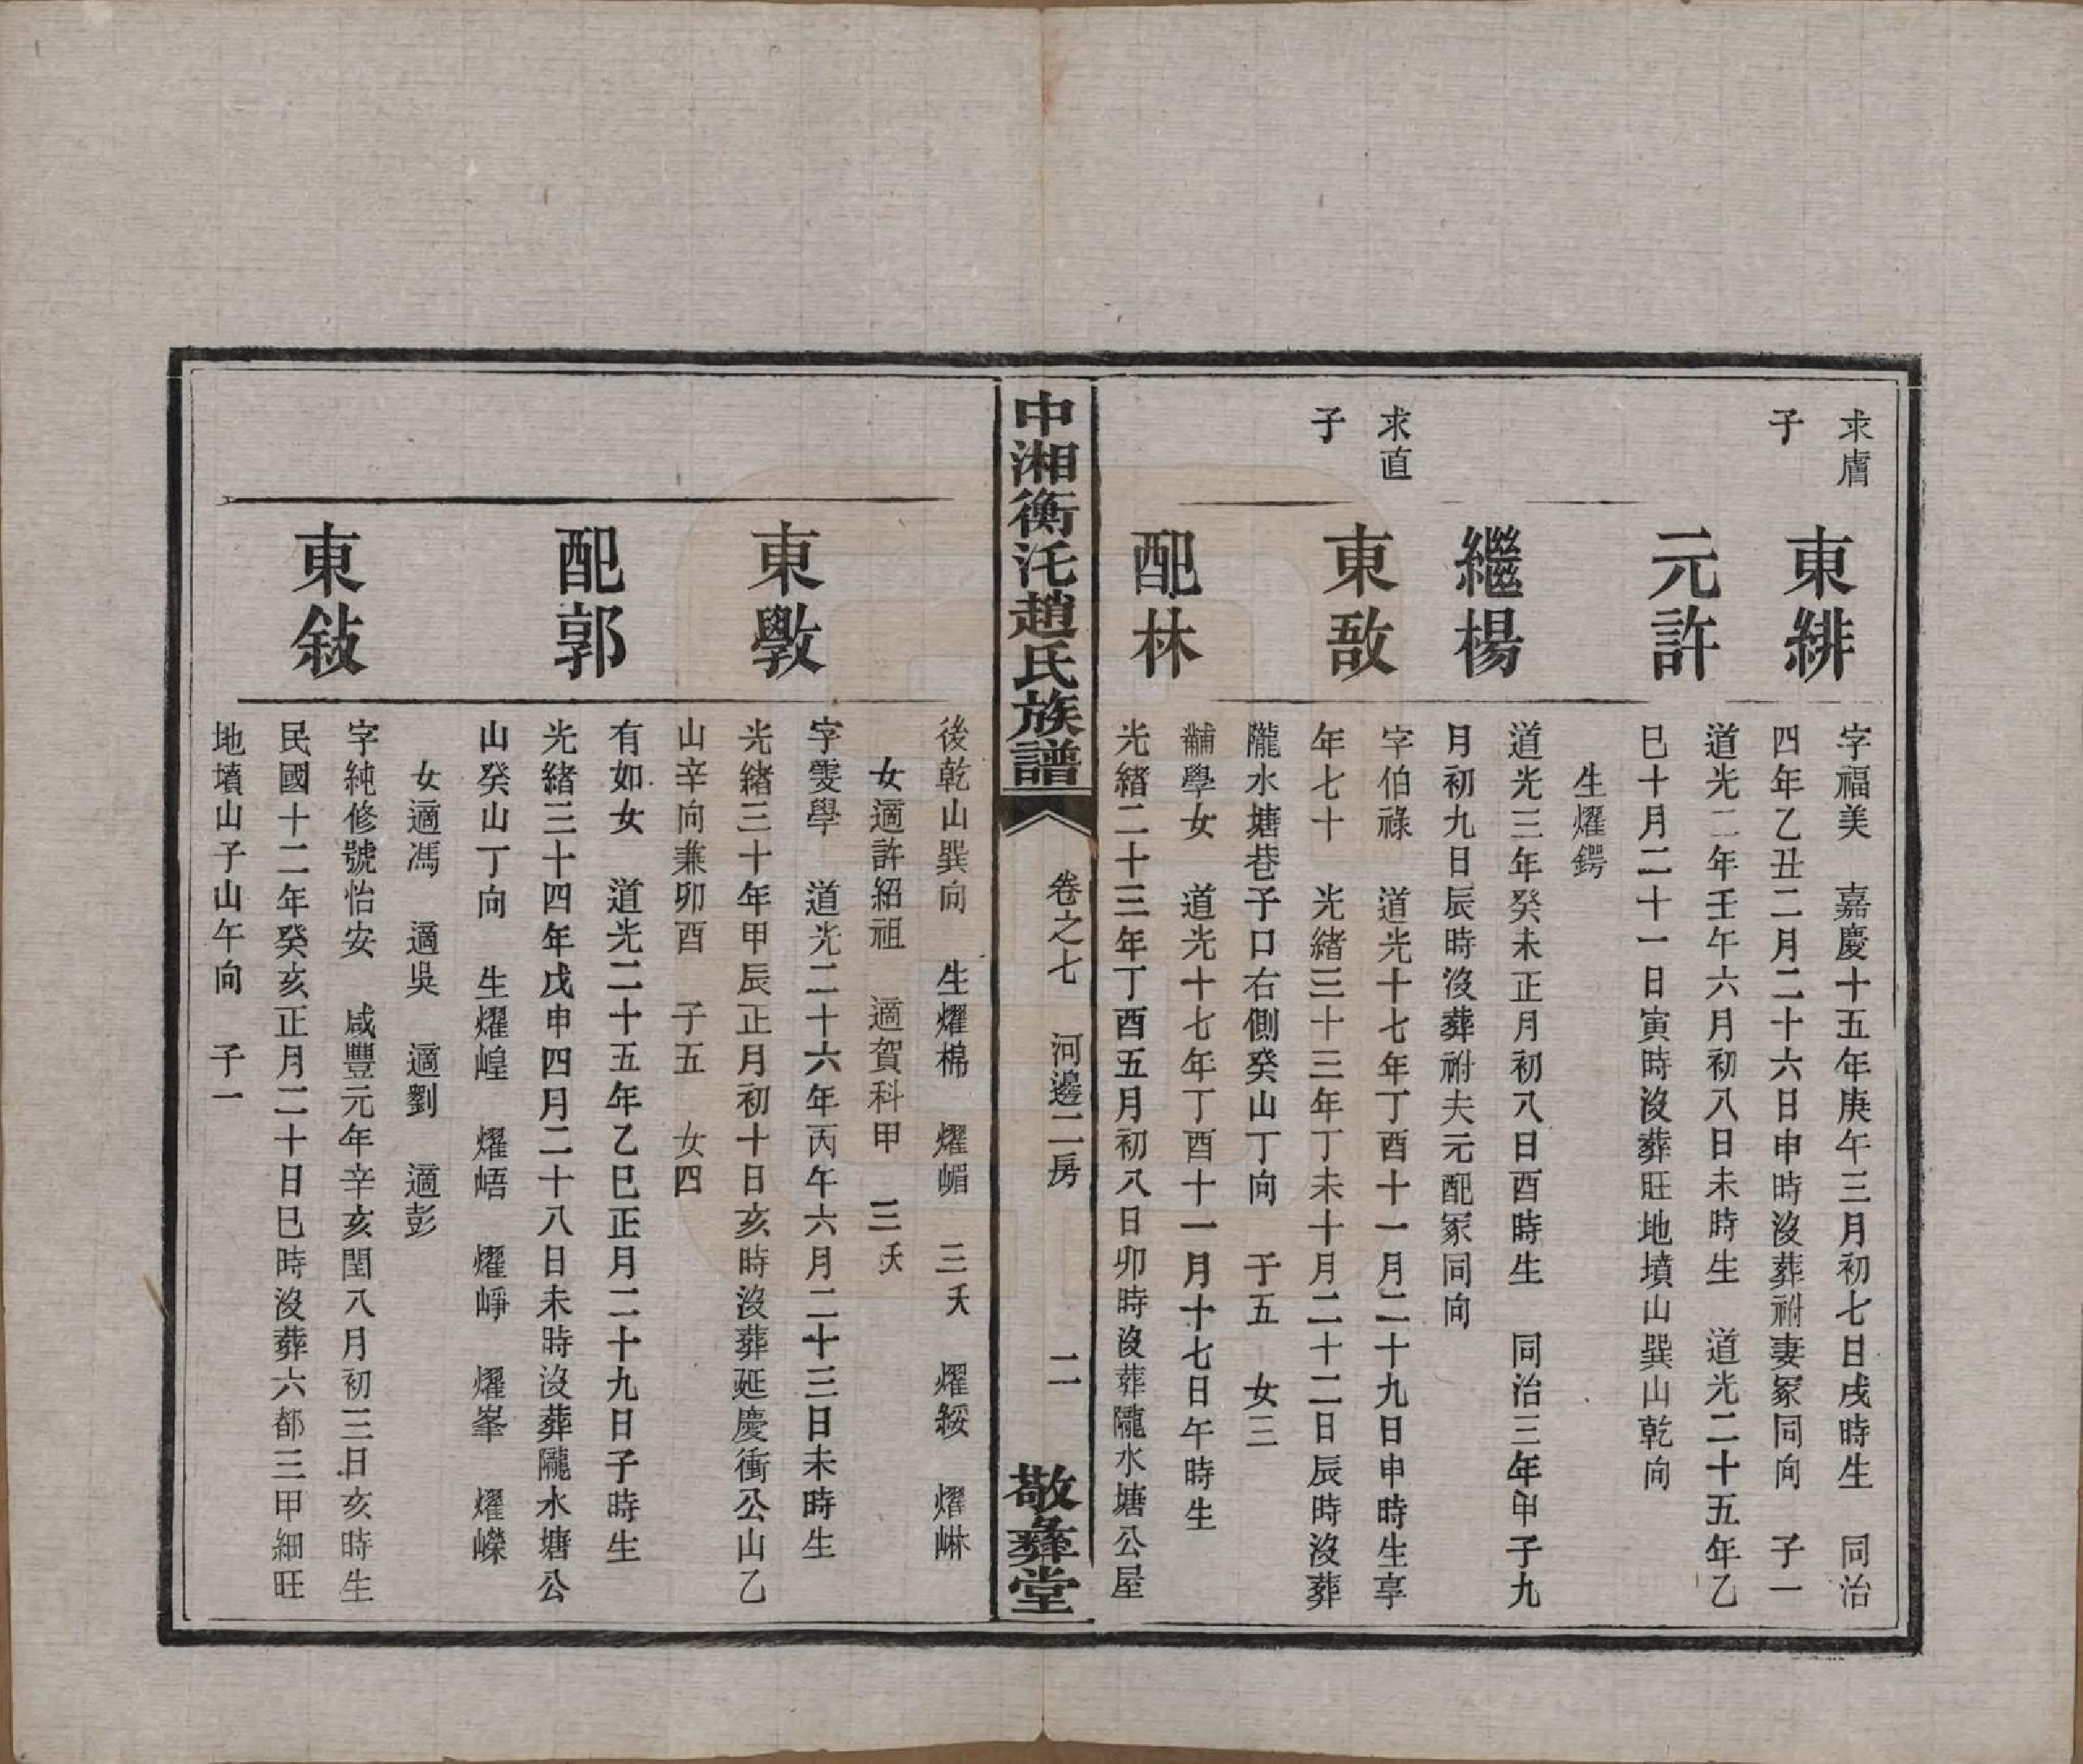 求膚
子
東緋
字福美　嘉慶十五年庚午三月初七日戌時生　同治
四年乙丑二月二十六日申時沒葬祔妻冢同向　子一
元許
道光二年壬午六月初八日未時生　道光二十五年乙
巳十月二十一日寅時沒葬旺地墳山巽山乾向
生燿鍔
繼楊
道光三年癸未正月初八日酉時生　同治三年甲子九
月初九日辰時沒葬祔夫元配冢同向
求直
子
東敔
字伯祿　道光十七年丁酉十一月二十九日申時生享
年七十　光緒三十三年丁未十月二十二日辰時沒葬
隴水塘巷子口右側癸山丁向　子五　女三
配林
黼學女　道光十七年丁酉十一月十七日午時生
光緒二十三年丁酉五月初八日卯時沒葬隴水塘公屋
中湘衡汑趙氏族譜
卷之七　河邊二房
二
敬彝堂
後乾山巽向　生燿棉　燿嵋　三夭　燿綏　燿崊
女適許紹祖　適賀科甲　三夭
東斆
字雯學　道光二十六年丙午六月二十三日未時生
光緒三十年甲辰正月初十日亥時沒葬延慶衝公山乙
山辛向兼卯酉　子五　女四
配郭
有如女　道光二十五年乙巳正月二十九日子時生
光緒三十四年戊申四月二十八日未時沒葬隴水塘公
山癸山丁向　生燿崲　燿峿　燿崢　燿峯　燿嶸
女適馮　適吳　適劉　適彭
東敍
字純修號怡安　咸豐元年辛亥閏八月初三日亥時生
民國十二年癸亥正月二十日巳時沒葬六都三甲細旺
地墳山子山午向　子一